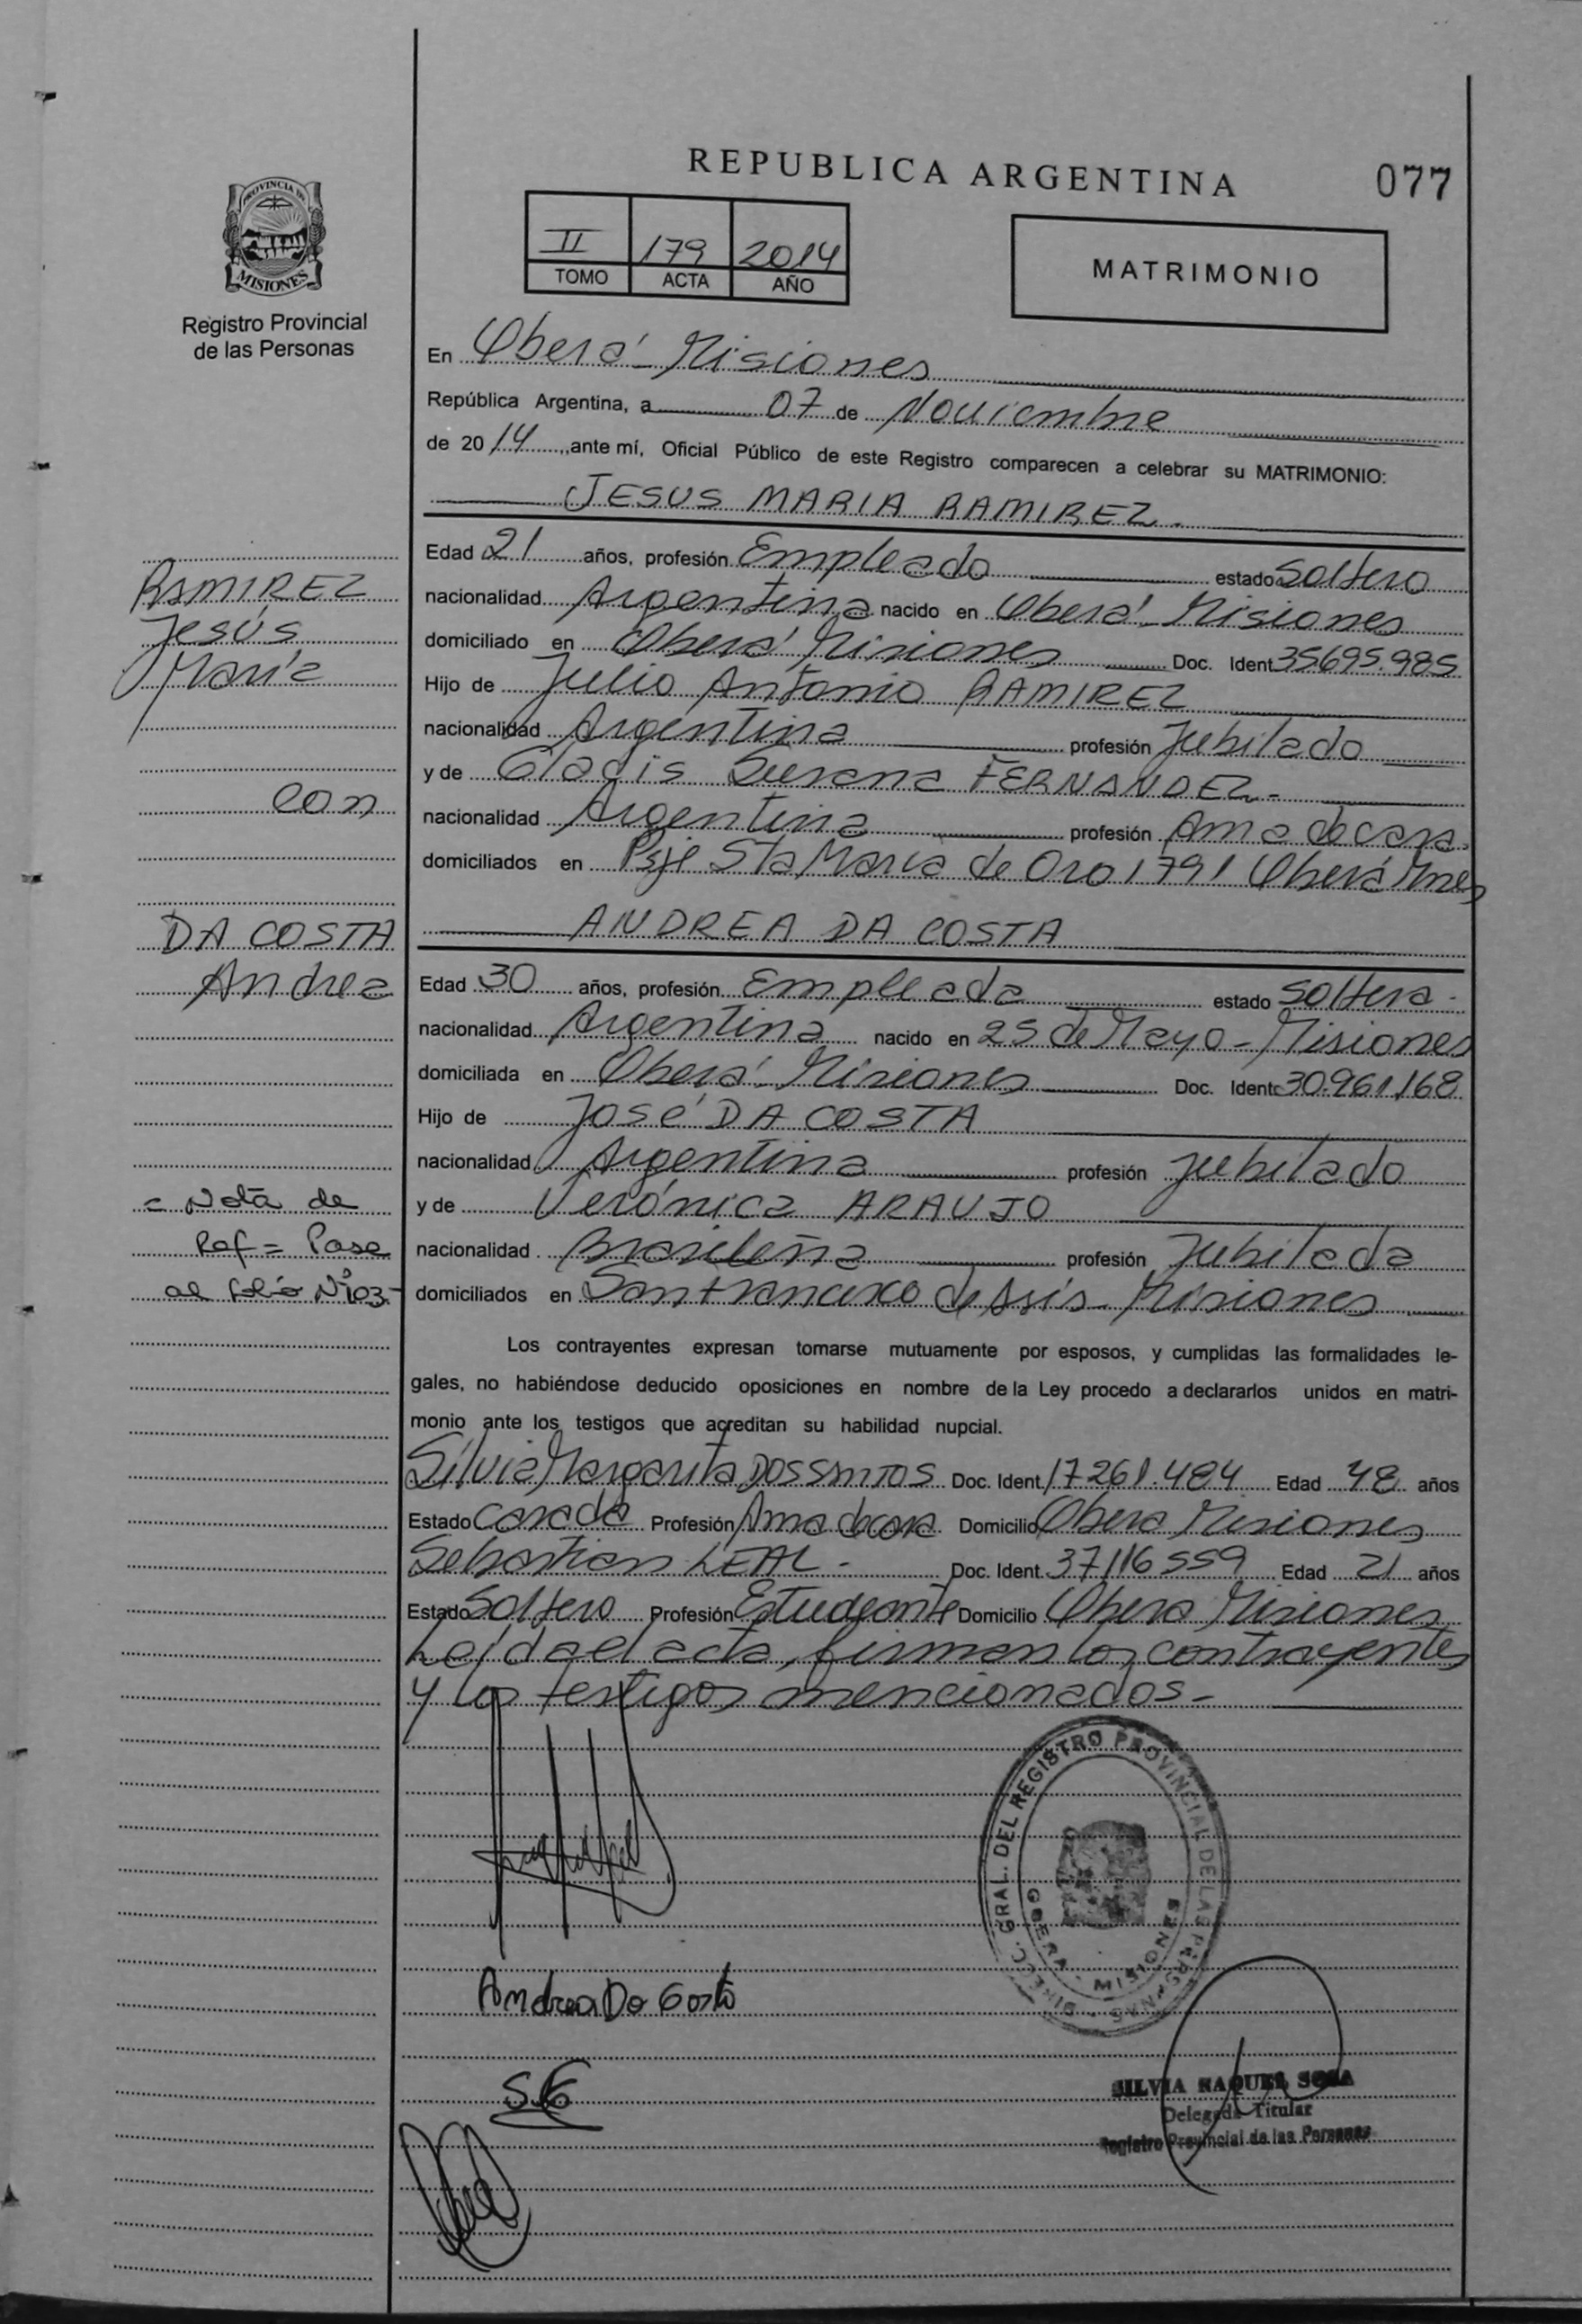 REPUBLICA ARGENTINA
077
PROVINCIA DE
MISIONES
Registro Provincial
de las Personas
II 179 2014
TOMO ACTA AÑO
MATRIMONIO
En Oberá - Misiones
República Argentina, a 07 de Noviembre
de 2014, ante mí, Oficial Público de este Registro comparecen a celebrar su MATRIMONIO:
JESUS MARIA RAMIREZ.
Edad 21 años, profesión Empleado estado Soltero
nacionalidad Argentina nacido en Oberá - Misiones
domiciliado en Oberá Misiones Doc. Ident 35695.985
Hijo de Julio Antonio RAMIREZ
nacionalidad Argentina profesión Jubilado
y de Gladis Susana FERNANDEZ.-
nacionalidad Argentina profesión Ama de casa.
domiciliados en Psje Sta Maria de Oro 1791 Oberá Mnes
RAMIREZ
Jesús
María
con
DA COSTA
Andrea
ANDREA DA COSTA
Edad 30 años, profesión Empleada estado Soltera.
nacionalidad Argentina nacido en 25 de Mayo - Misiones
domiciliada en Oberá - Misiones Doc. Ident 30.961.168
Hijo de José DA COSTA
nacionalidad Argentina profesión Jubilado
y de Verónica ARAUJO
nacionalidad Brasileña profesión Jubilada
domiciliados en San Francisco de Asis - Misiones
= Nota de
Ref = Pase
al folio Nº103-
Los contrayentes expresan tomarse mutuamente por esposos, y cumplidas las formalidades le-
gales, no habiéndose deducido oposiciones en nombre de la Ley procedo a declararlos unidos en matri-
monio ante los testigos que acreditan su habilidad nupcial.
Silvia Margarita DOSSANTOS Doc. Ident. 17261.484 Edad 48 años
Estado Casada Profesión Ama de casa Domicilio Oberá Misiones
Sebastian LEAL - Doc. Ident. 37116559 Edad 21 años
Estado Soltero Profesión Estudiante Domicilio Obera Misiones
Leída el acta, firman los contrayentes
y los testigos mencionados.-
DIRECC. GRAL. DEL REGISTRO PROVINCIAL DE LAS PERSONAS
OBERA - MISIONES
Andrea Da Costa
SILVIA RAQUEL SOSA
Delegada Titular
Registro Provincial de las Personas